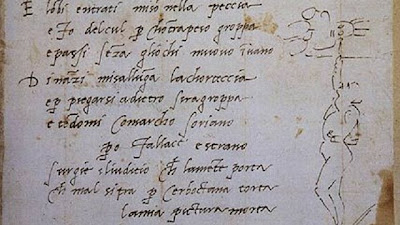 E lobi entrati miso nella peccia
e fo delcul p chotrapeso groppa
e passi seza gliochi muovo ivano
Dinazi misalluga lachorteccia
ep piegarsi adietro siragroppa
e tedomi comarcho soriano
Po fallace e strano
surgie iliudicio ch lamete porta
ch mal sitra p cerboctana torta
lamia pictura morta